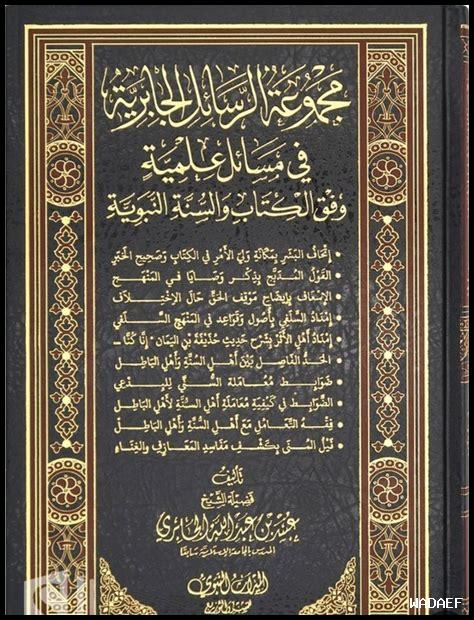 مجموعة الرسائل الجابرية
في مسائل علمية
وفق الكتاب والسنة النبوية
• إتحاف البشر بمكانة ولي الأمر في الكتاب وصحيح الخبر
• القول المدبج بذكر وصايا في المنهج
• الإسعاف بإيضاح موقف الحق حال الاختلاف
• إمداد السلفي بأصول وقواعد في المنهج السلفي
• إمداد أهل الأثر بشرح حديث حذيفة بن اليمان "إنا كنا"
• الحد الفاصل بين أهل السنة وأهل الباطل
• ضوابط معاملة السني للبدعي
• الضوابط في كيفية معاملة أهل السنة لأهل الباطل
• فقه التعامل مع أهل السنة وأهل الباطل
• نيل المنى بكشف مفاسد المعازف والغناء
تأليف
فضيلة الشيخ
عبيد بن عبد الله الجابري
المدرس بالجامعة الإسلامية سابقا
الميراث النبوي
للنشر والتوزيع
WADAEF